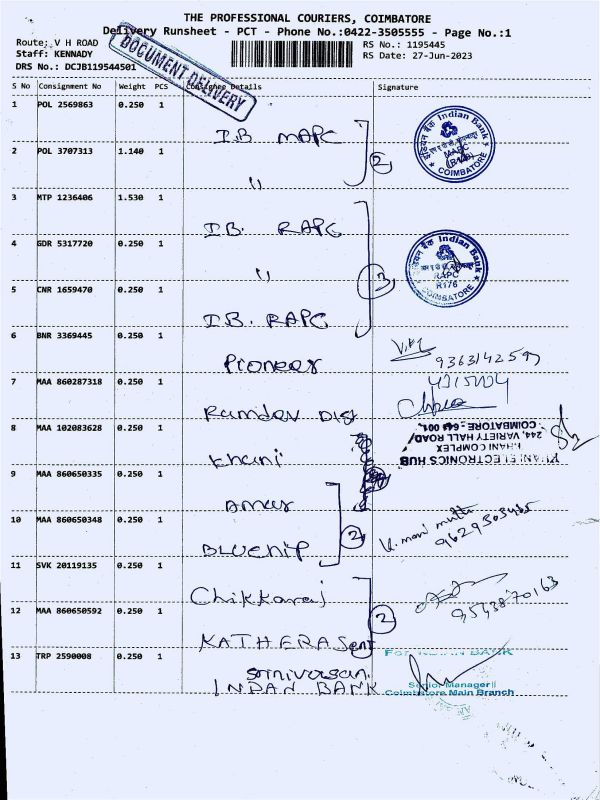 THE PROFESSIONAL COURIERS, COIMBATORE
Delivery Runsheet - PCT - Phone No.:0422-3505555 - Page No.:1
Route: V H ROAD
RS No.: 1195445
Staff: KENNADY
RS Date: 27-Jun-2023
DRS No.: DCJB119544501
DOCUMENT DELIVERY
S No Consignment No Weight PCS Consignee Details Signature
1 POL 2569863 0.250 1 I.B MAPC
Indian Bank
MAPC
COIMBATORE
2 POL 3707313 1.140 1 "
2
3 MTP 1236406 1.530 1 I.B. RAPC
4 GDR 5317720 0.250 1 "
Indian Bank
RAPC
R176
COIMBATORE
3
5 CNR 1659470 0.250 1 I.B. RAPC
6 BNR 3369445 0.250 1 Pioneer
7 MAA 860287318 0.250 1 Ramdev Dist
8 MAA 102083628 0.250 1 Khani
KHANI ELECTRONICS HUB
KHANI COMPLEX
244, VARIETY HALL ROAD
COIMBATORE - 641 001.
9 MAA 860650335 0.250 1 Amar
10 MAA 860650348 0.250 1 Bluechip
2
K. mani muthu
11 SVK 20119135 0.250 1 Chikkaraj
12 MAA 860650592 0.250 1 KATHERASent
2
Srinivasan.
13 TRP 2590008 0.250 1 INDAN BANK
For INDIAN BANK
Senior Manager
Coimbatore Main Branch